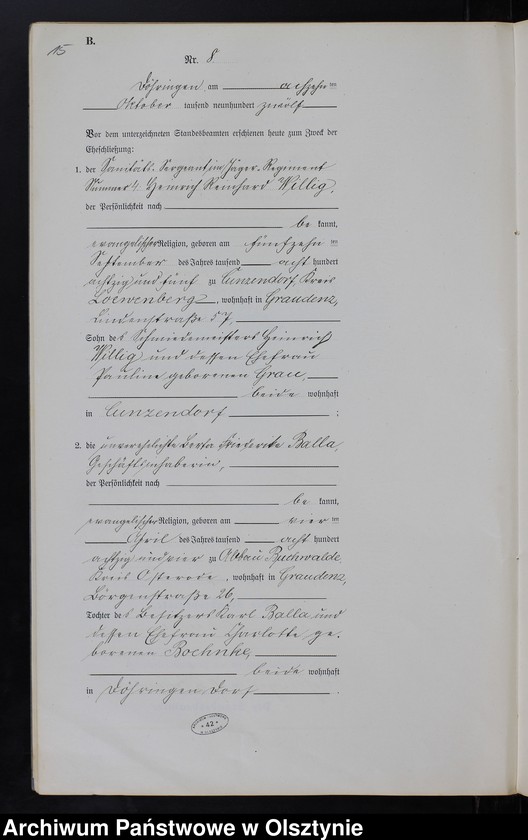 15
B.
Nr. 8
Döhringen am achtzehn ten
Oktober tausend neunhundert zwölf
Vor dem unterzeichneten Standesbeamten erschienen heute zum Zweck der
Eheschließung:
1. der Sanitäts-Sergeant im Jäger-Regiment
Nummer 4, Heinrich Reinhard Willig,
der Persönlichkeit nach
be kannt,
evangelischer Religion, geboren am fünfzehn ten
September des Jahres tausend acht hundert
achtzig und fünf zu Cunzendorf, Kreis
Loewenberg, wohnhaft in Graudenz,
Lindenstraße 57,
Sohn des Schmiedemeisters Heinrich
Willig und dessen Ehefrau
Pauline geborenen Grau,
beide wohnhaft
in Cunzendorf ;
2. die unverehelichte Berta Balla,
Geschäftsinhaberin,
der Persönlichkeit nach
be kannt,
evangelischer Religion, geboren am vier ten
April des Jahres tausend acht hundert
achtzig und vier zu Abbau Buchwalde,
Kreis Osterode, wohnhaft in Graudenz,
Börgenstraße 26,
Tochter des Besitzers Karl Balla und
dessen Ehefrau Charlotte ge-
borenen Boehnke,
beide wohnhaft
in Döhringen Dorf .
* 42 *
Archiwum Państwowe w Olsztynie